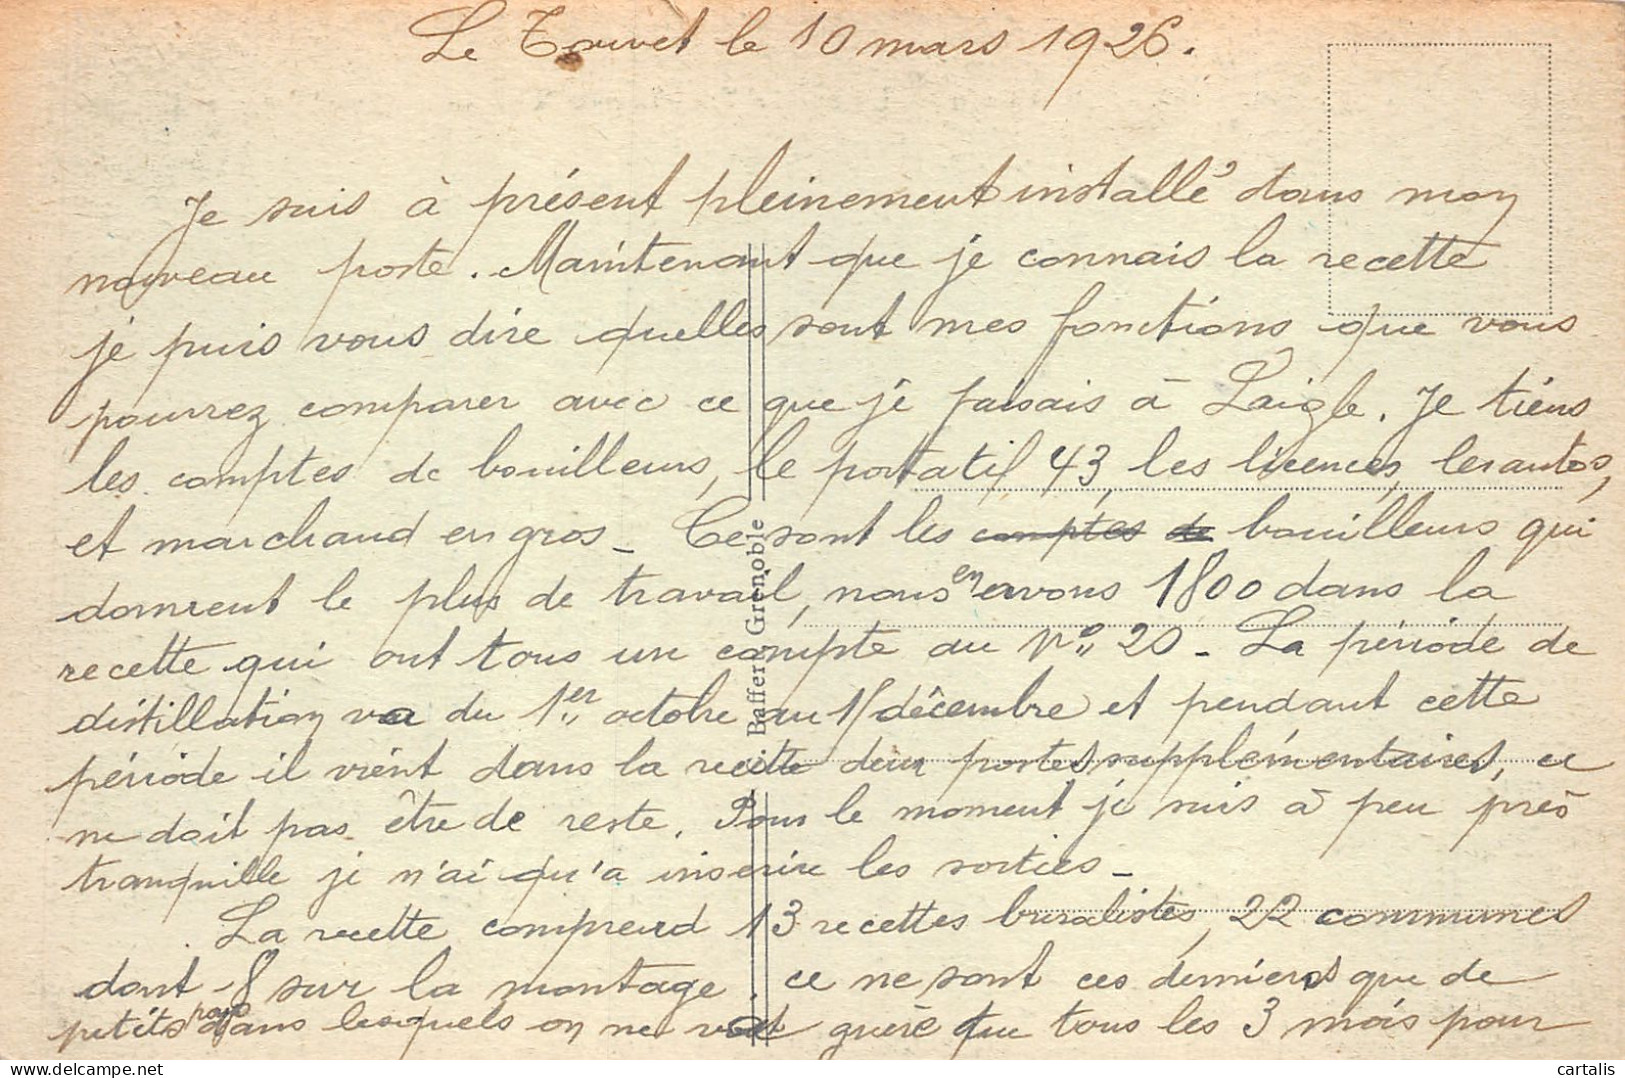 Le Touvet le 10 mars 1926.
Je suis à présent pleinement installé dans mon
nouveau poste. Maintenant que je connais la recette
je puis vous dire quelles sont mes fonctions que vous
pourrez comparer avec ce que je faisais à Laigle. Je tiens
les comptes de bouilleurs, le portatif 43, les licences, les autos,
et marchand en gros _ Ce sont les comptes de bouilleurs qui
donnent le plus de travail, nous en avons 1800 dans la
recette qui ont tous un compte au N° 20 _ La période de
distillation va du 1er octobre au 1/décembre et pendant cette
période il vient dans la recette deux postes supplémentaires, ce
ne doit pas être de reste. Pour le moment je suis à peu près
tranquille je n'ai qu'a inscrire les sorties _
La recette comprend 13 recettes buralistes, 22 communes
dont 8 sur la montage. ce ne sont ces derniers que de
petits pays dans lesquels on ne va guère que tous les 3 mois pour
Baffert, Grenoble
www.delcampe.net
cartalis